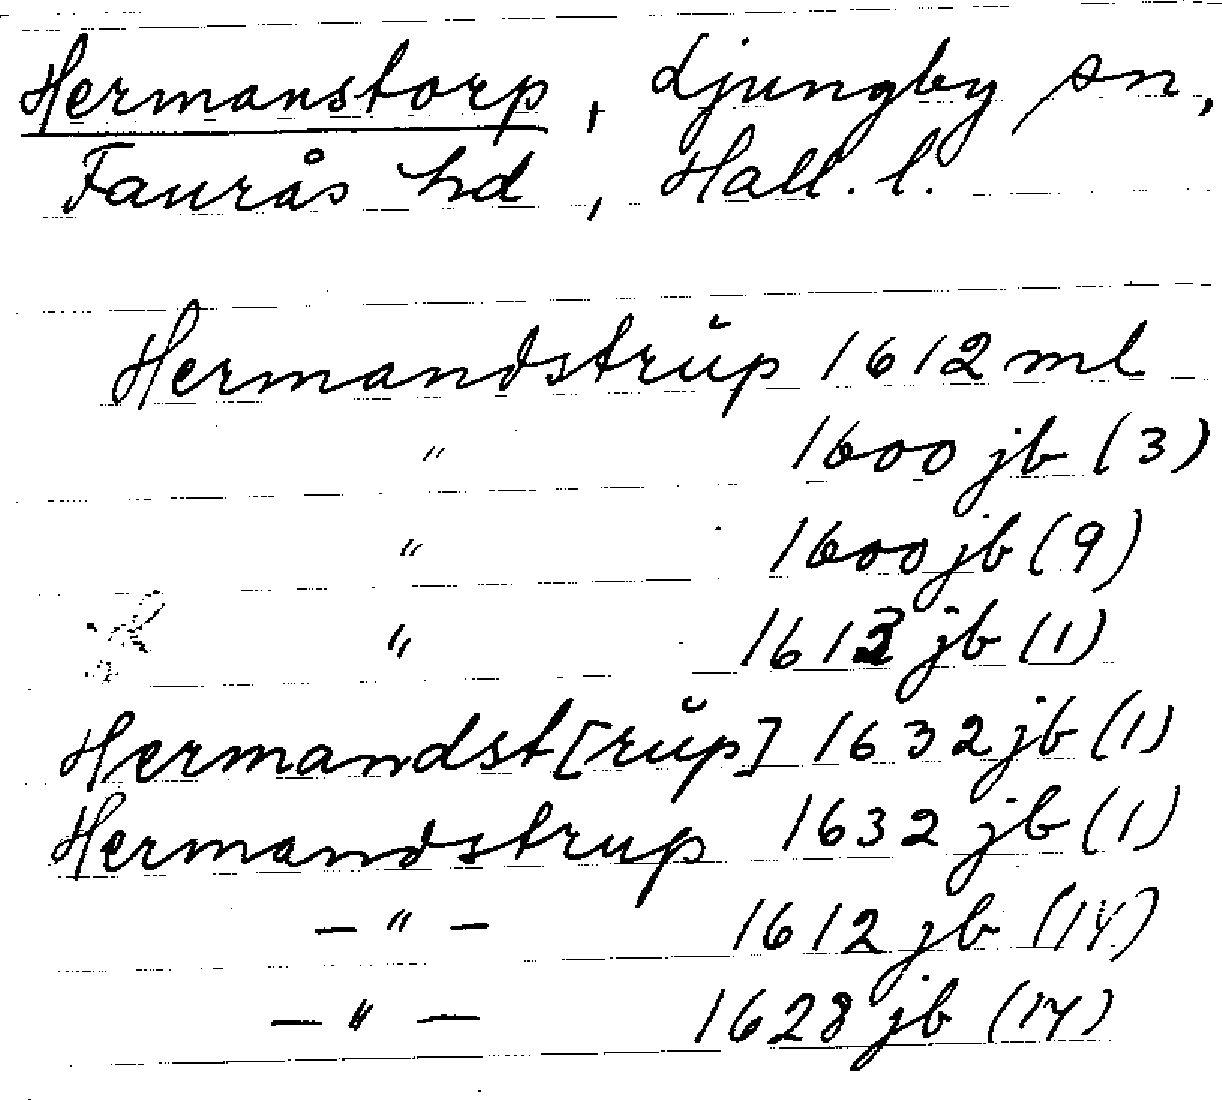 Hermanstorp, Ljungby sn,
Faurås hd, Hall. l.
Hermandstrŭp 1612 ml
" 1600 jb (3)
" 1600 jb (9)
" 1612 jb (1)
Hermandst[rŭp] 1632 jb (1)
Hermandstrup 1632 jb (1)
— " — 1612 jb (14)
— " — 1628 jb (14)